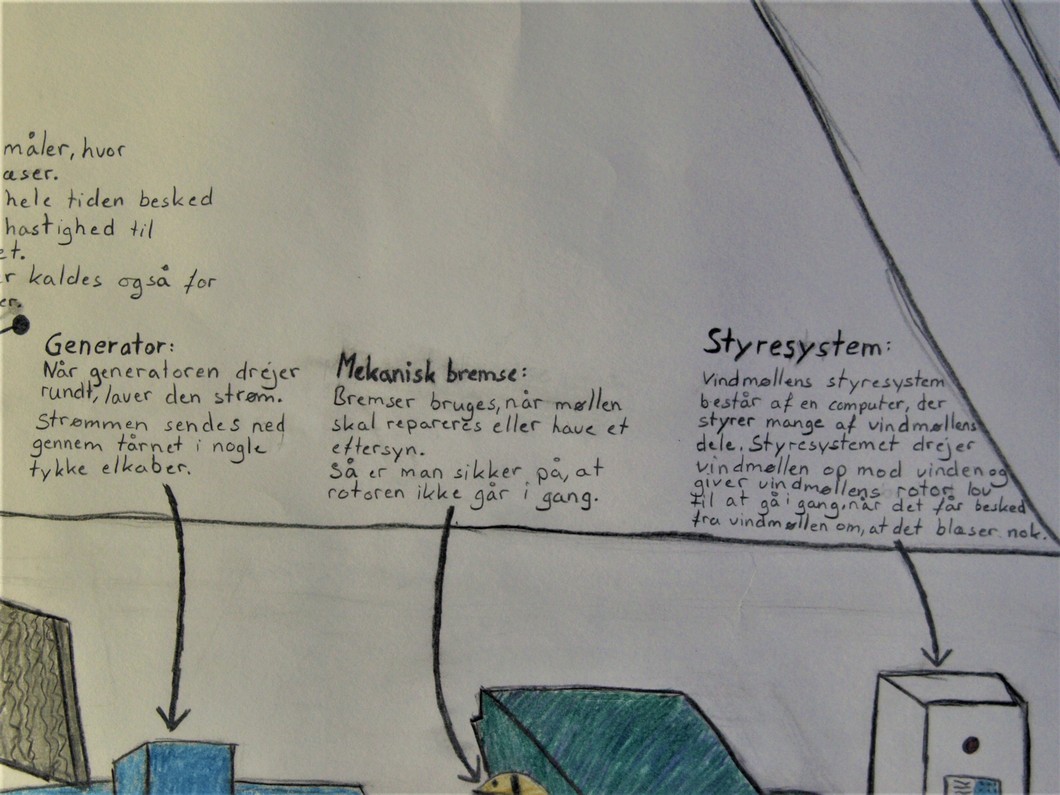 måler, hvor
æser.
hele tiden besked
hastighed til
et.
r kaldes også for
er.
Generator:
Når generatoren drejer
rundt, laver den strøm.
Strømmen sendes ned
gennem tårnet i nogle
tykke elkaber.
Mekanisk bremse:
Bremser bruges, når møllen
skal repareres eller have et
eftersyn.
Så er man sikker på, at
rotoren ikke går i gang.
Styresystem:
Vindmøllens styresystem
består af en computer, der
styrer mange af vindmøllens
dele. Styresystemet drejer
vindmøllen op mod vinden og
giver vindmøllens rotor lov
til at gå i gang, når det får besked
fra vindmøllen om, at det blæser nok.